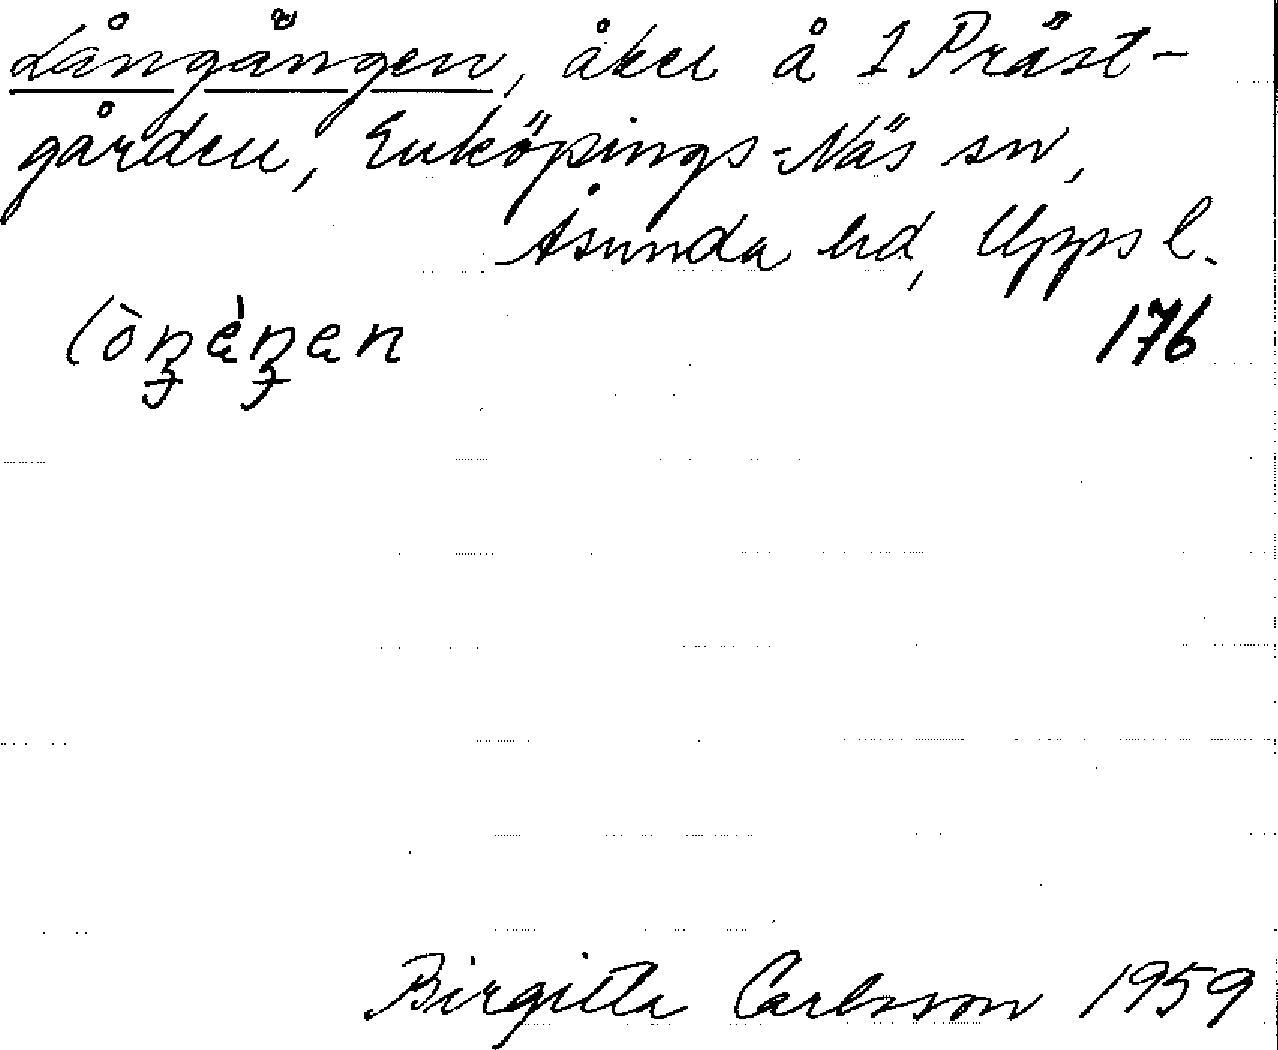 Långängen, åker å 1 Präst-
gården, Enköpings-Näs sn,
Åsunda hd, Uppsl.
176
Birgitta Carlsson 1959